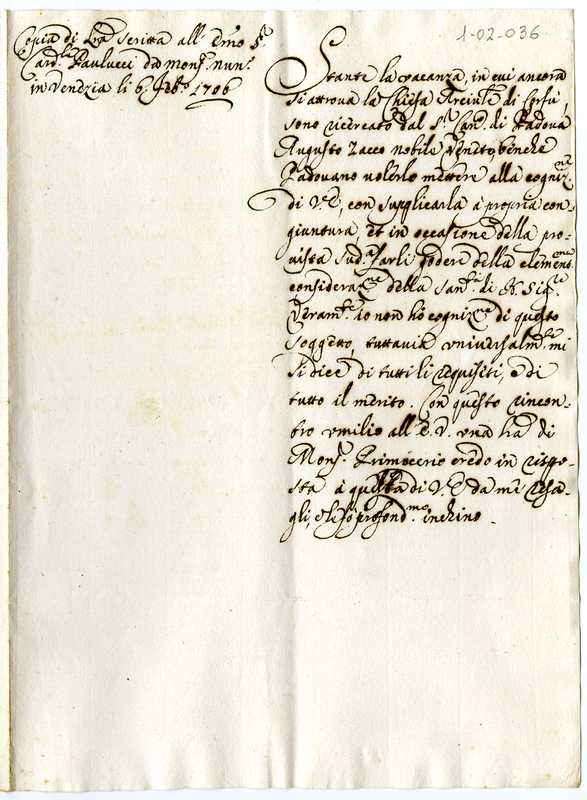 Copia di Lrã scritta all' Emo Sr.
Card.le Paulucci da Mons.r Nun.o
in Venezia li 6. Febo. 1706
1-02-036
Stante la vacanza, in cui ancora
si attrova la Chiesa Arcivle di Corfù,
sono ricercato dal Sr. Card. di Padova
Augusto Zacco nobile Veneto, benche
Padovano volerlo mettere alla cogniz.ne
di V.E., con supplicarla à propria con-
giuntura, et in occasione della pro-
vista sud.a farli godere della clemen.ma
consideraz.ne della San.tà di N. Sig.re
Veram.te io non hò cogniz.ne di questo
soggetto, tuttavia universalm.te mi
si dice di tutti li requisiti, e di
tutto il merito. Con questo rincon-
tro umilio all' E.V. una lrã di
Mons.r Primicerio credo in rispo-
sta à questa di V.E. da me resa-
gli, e le fò profond.mo inchino.